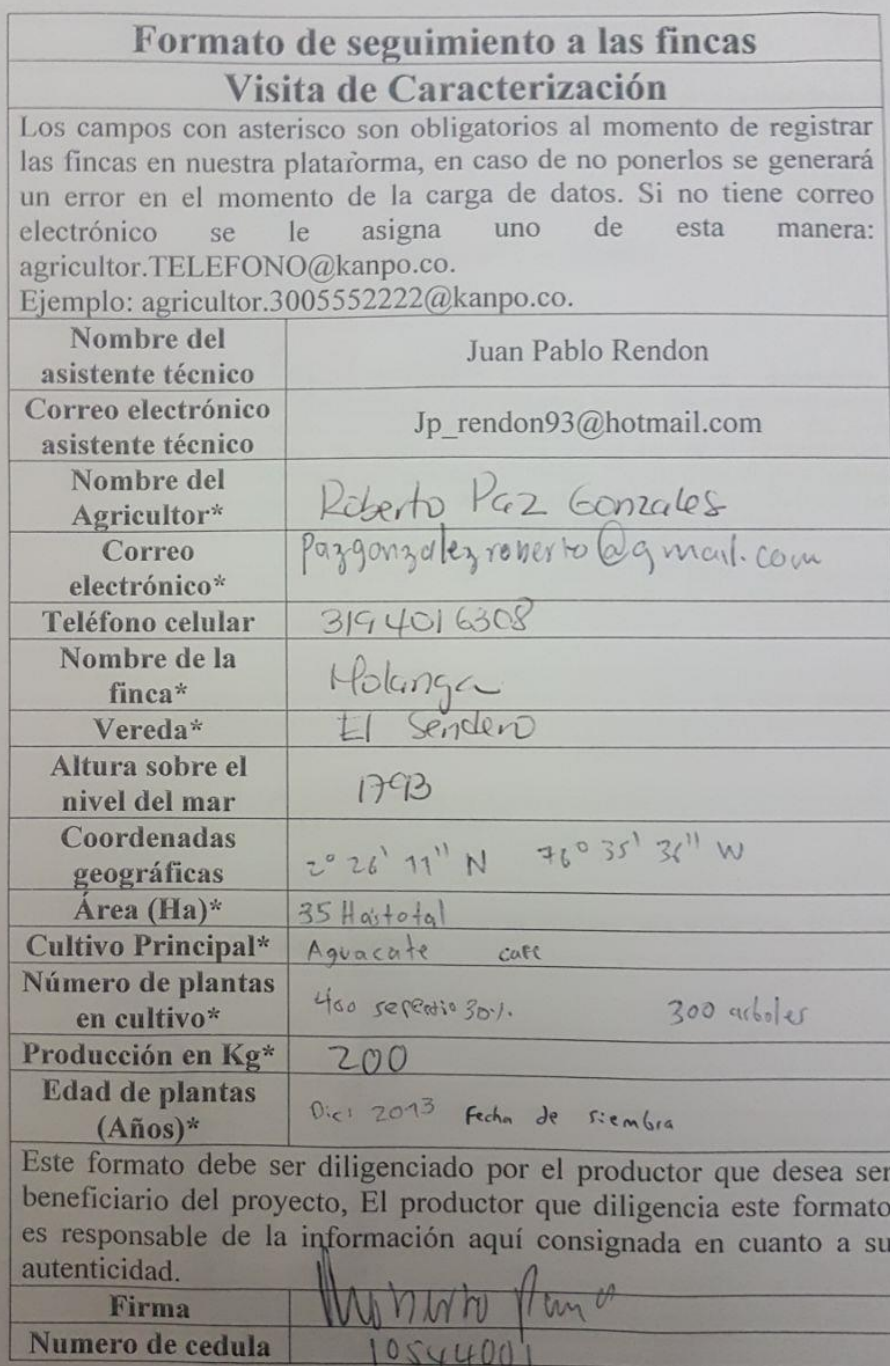 Formato de seguimiento a las fincas
Visita de Caracterización
Los campos con asterisco son obligatorios al momento de registrar
las fincas en nuestra plataforma, en caso de no ponerlos se generará
un error en el momento de la carga de datos. Si no tiene correo
electrónico se le asigna uno de esta manera:
agricultor.TELEFONO@kanpo.co.
Ejemplo: agricultor.3005552222@kanpo.co.
Nombre del
asistente técnico
Juan Pablo Rendon
Correo electrónico
asistente técnico
Jp_rendon93@hotmail.com
Nombre del
Agricultor*
Roberto Paz Gonzales
Correo
electrónico*
pazgonzalezroberto@gmail.com
Teléfono celular
3194016308
Nombre de la
finca*
Vereda*
El Sendero
Altura sobre el
nivel del mar
1793
Coordenadas
geográficas
2° 26' 11" N 76° 35' 36" W
Área (Ha)*
35 Has total
Cultivo Principal*
Aguacate cafe
Número de plantas
en cultivo*
400 30%. 300 arboles
Producción en Kg*
200
Edad de plantas
(Años)*
Dici 2013 Fecha de siembra
Este formato debe ser diligenciado por el productor que desea ser
beneficiario del proyecto, El productor que diligencia este formato
es responsable de la información aquí consignada en cuanto a su
autenticidad.
Firma
Numero de cedula
10544001